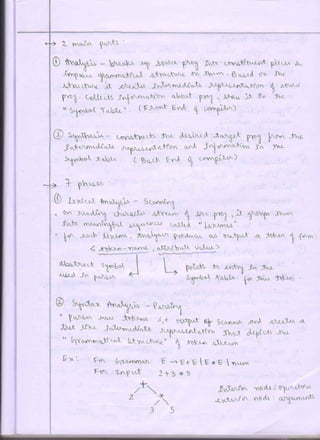 → 2 main parts :
① Analysis - breaks up source prog into constituent pieces &
impose grammatical structure on them. Based on the
structure it creates intermediate representation of source
prog. Collects information about prog, store it in the
"Symbol Table". (Front End of compiler)
② Synthesis - constructs the desired target prog from the
intermediate representation and information in the
symbol table (Back End of compiler)
→ 7 phases
① Lexical Analysis - Scanning
• On reading character stream of src prog, it groups them
into meaningful sequences called "Lexemes".
• for each lexeme, Analysis produces as output a token of form:
< token-name, attribute value >
abstract symbol
used in parser
points to entry in the
symbol table for this token.
② Syntax Analysis - Parsing
• Parser uses tokens i.e output of Scanner and creates a
tree like intermediate representation that depicts the
"Grammatical structure" of token stream.
Ex: For Grammar: E → E+E | E*E | num
For Input 2+3*5
+
2 *
3 5
Interior node: operators
exterior node: arguments